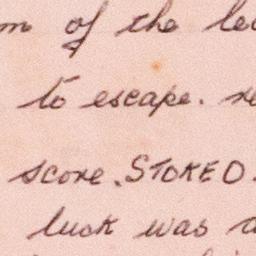 of the
to escape.
score. STOKED.
luck was